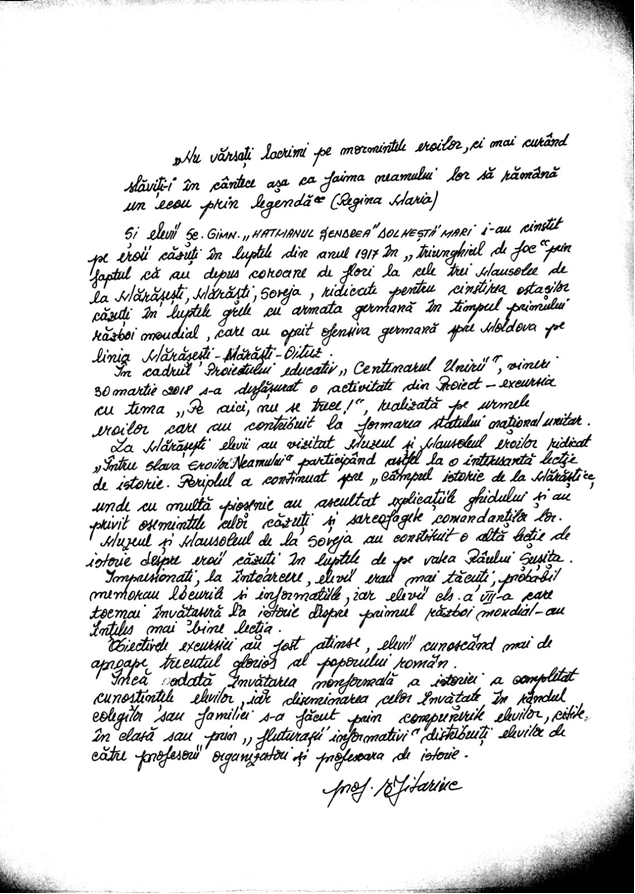 „Nu vărsați lacrimi pe mormintele eroilor, ci mai curând
slăviți-i în cântece așa ca faima neamului lor să rămână
un ecou prin legendă” (Regina Maria)
Și elevii Șc. Gimn. „HATMANUL ȘENDREA” DOLHEȘTII MARI i-au cinstit
pe eroii căzuți în luptele din anul 1917 în „triunghiul de foc” prin
faptul că au depus coroane de flori la cele trei Mausolee de
la Mărășești, Mărăști, Soveja, ridicate pentru cinstirea ostașilor
căzuți în luptele grele cu armata germană în timpul primului
război mondial, care au oprit ofensiva germană spre Moldova pe
linia Mărășești-Mărăști-Oituz.
În cadrul Proiectului educativ „Centenarul Unirii”, vineri
30 martie 2018 s-a desfășurat o activitate din Proiect - excursia
cu tema „Pe aici, nu se trece!”, realizată pe urmele
eroilor care au contribuit la formarea statului național unitar.
La Mărășești elevii au vizitat Muzeul și Mausoleul eroilor ridicat
„Întru slava Eroilor Neamului” participând astfel la o interesantă lecție
de istorie. Periplul a continuat spre „câmpul istoric de la Mărăști”,
unde cu multă pioșenie au ascultat explicațiile ghidului și au
privit osemintele celor căzuți și sarcofagele comandanților lor.
Muzeul și Mausoleul de la Soveja au constituit o altă lecție de
istorie despre eroii căzuți în luptele de pe valea Râului Șușița.
Impresionați, la întoarcere, elevii erau mai tăcuți, probabil
memorau locurile și informațiile, iar elevii cls. a VII-a care
tocmai învățaseră la istorie despre primul război mondial-au
înțeles mai bine lecția.
Obiectivele excursiei au fost atinse, elevii cunoscând mai de
aproape trecutul glorios al poporului român.
Încă odată învățarea nonformală a istoriei a completat
cunoștințele elevilor, iar diseminarea celor învățate în rândul
colegilor sau familiei s-a făcut prin compunerile elevilor, citite
în clasă sau prin „fluturași informativi” distribuiți elevilor de
către profesorii organizatori și profesoara de istorie.
prof.